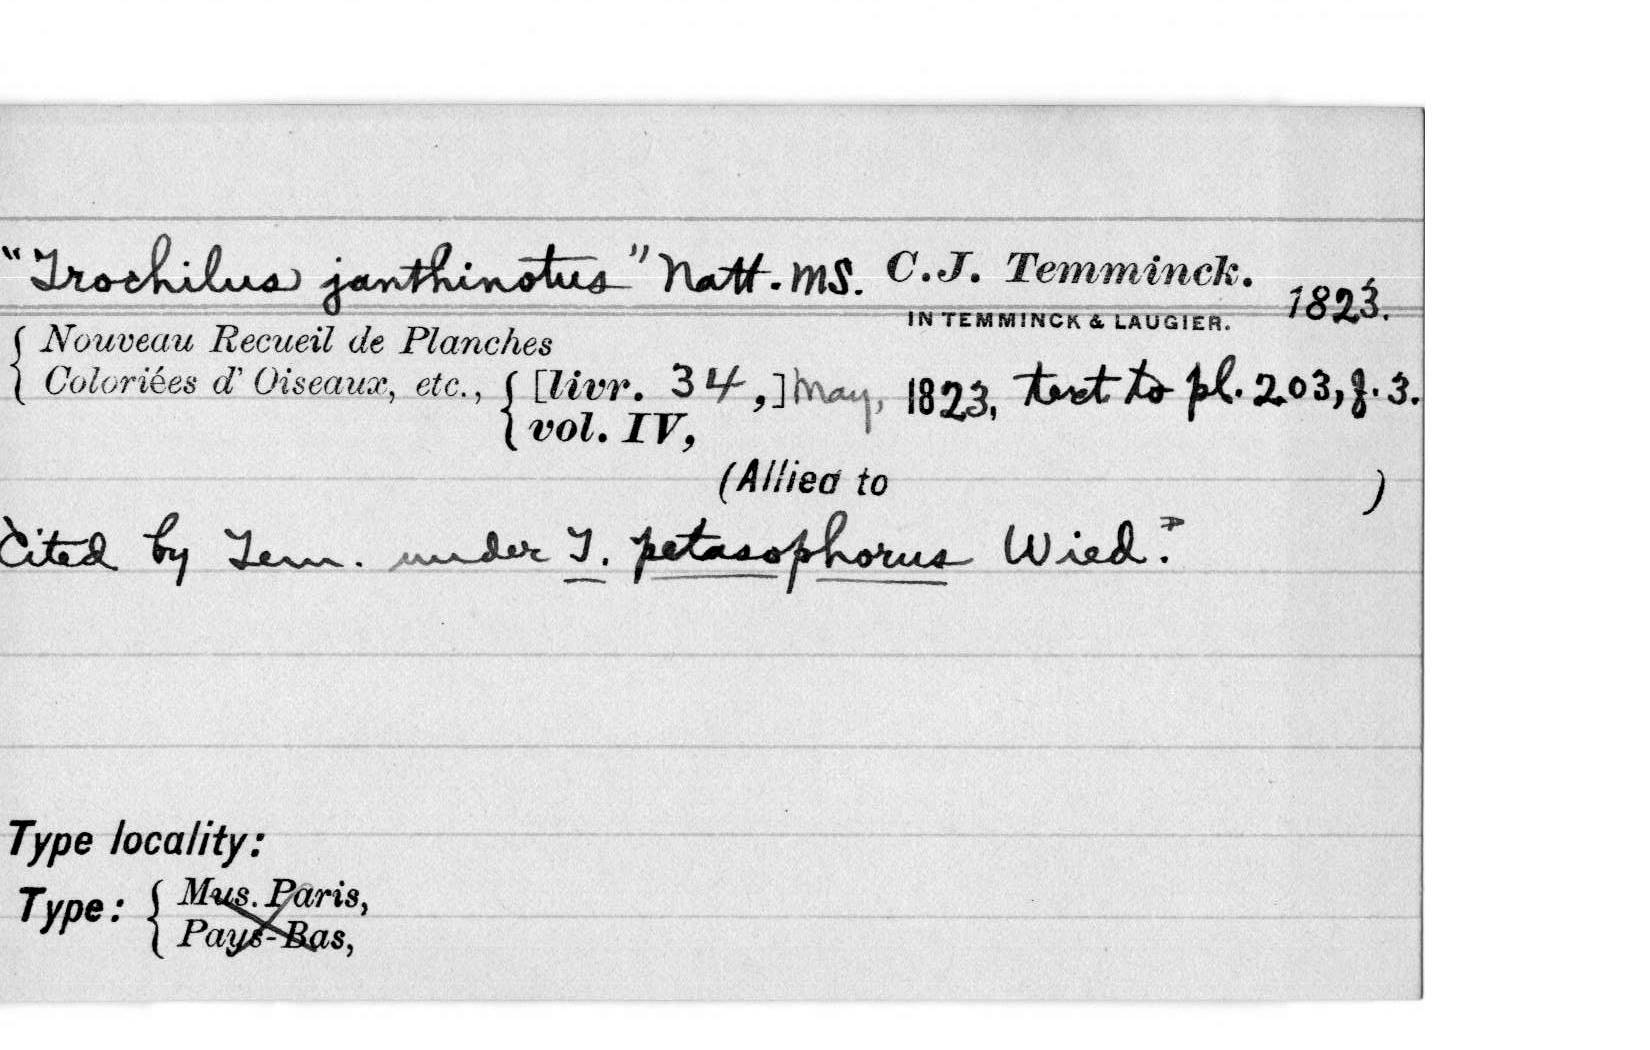 "Trochilus janthinotus" Natt. MS. C.J. Temminck.
IN TEMMINCK & LAUGIER. 1823.
Nouveau Recueil de Planches
Coloriées d' Oiseaux, etc., [livr. 34,] May, 1823, text to pl. 203, f. 3.
vol. IV,
(Allied to )
Cited by Tem. under T. petasophorus Wied.
Type locality:
Type: Mus. Paris,
Pays-Bas,